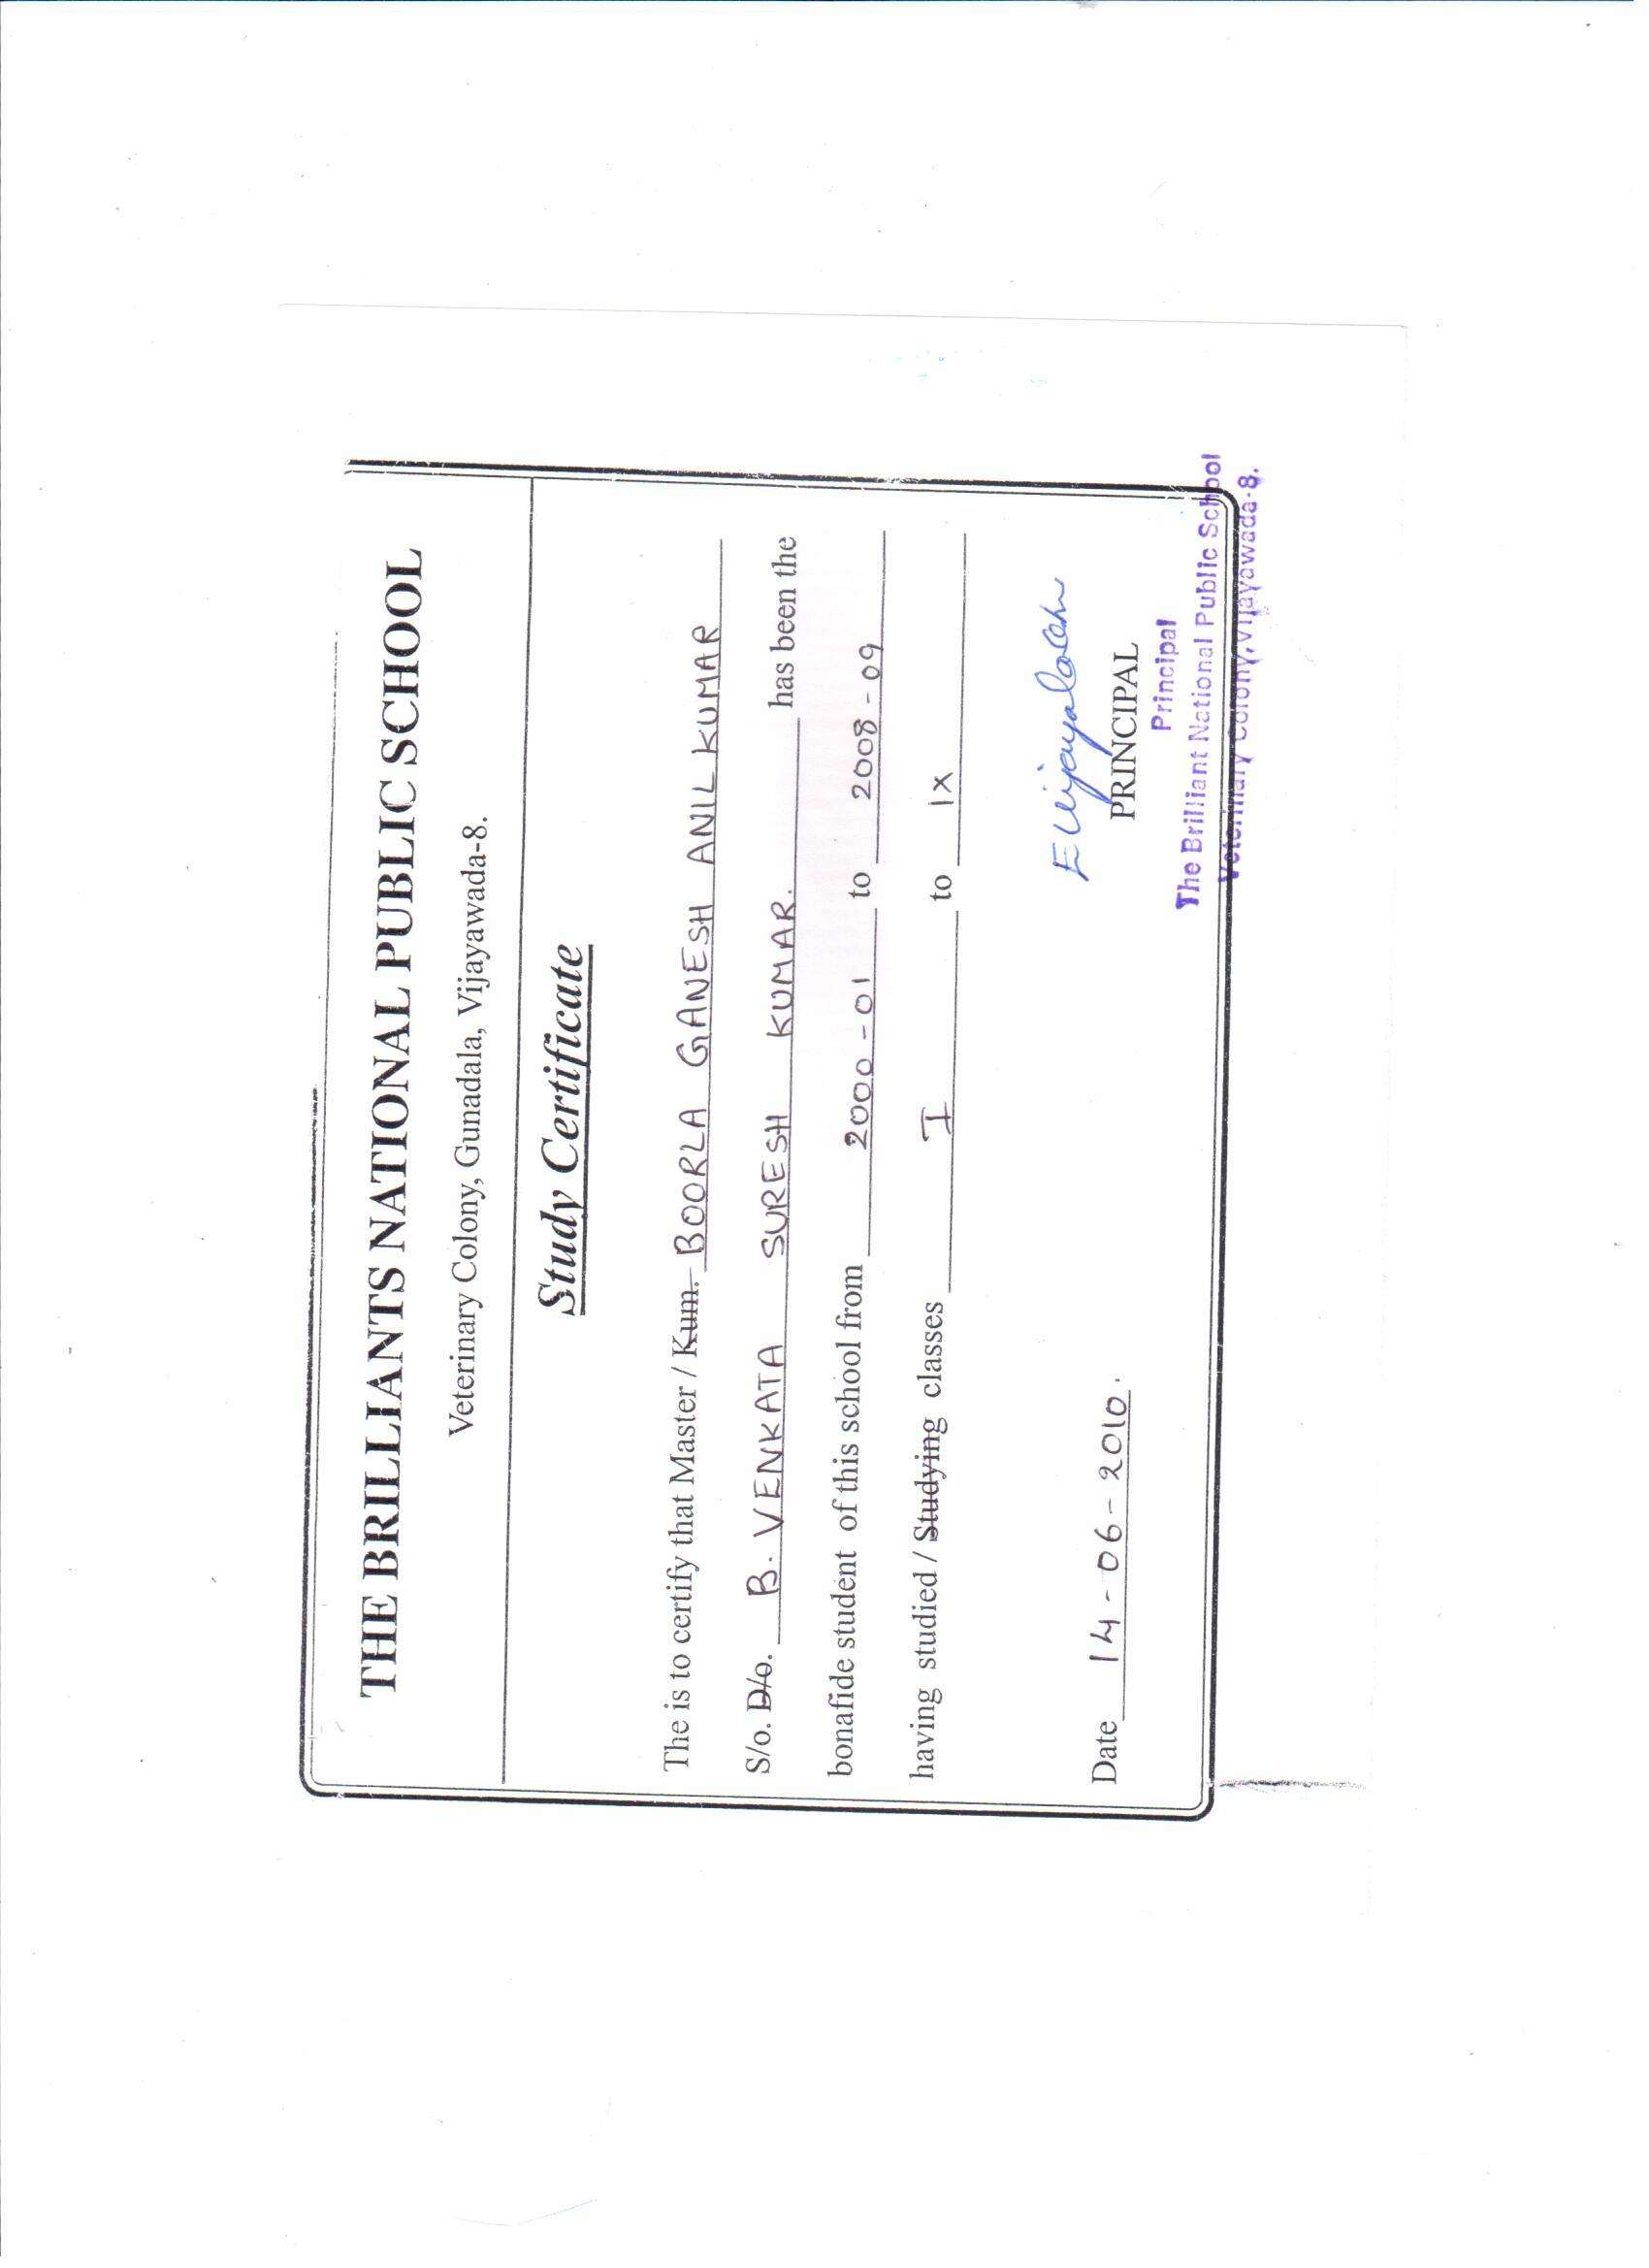 THE BRILLIANTS NATIONAL PUBLIC SCHOOL
Veterinary Colony, Gunadala, Vijayawada-8.
Study Certificate
The is to certify that Master / Kum. BOORLA GANESH ANIL KUMAR
S/o. D/o. B. VENKATA SURESH KUMAR. has been the
bonafide student of this school from 2000-01 to 2008-09
having studied / Studying classes I to IX
Date 14-06-2010.
PRINCIPAL
Principal
The Brilliant National Public School
Veterinary Colony, Vijayawada-8.